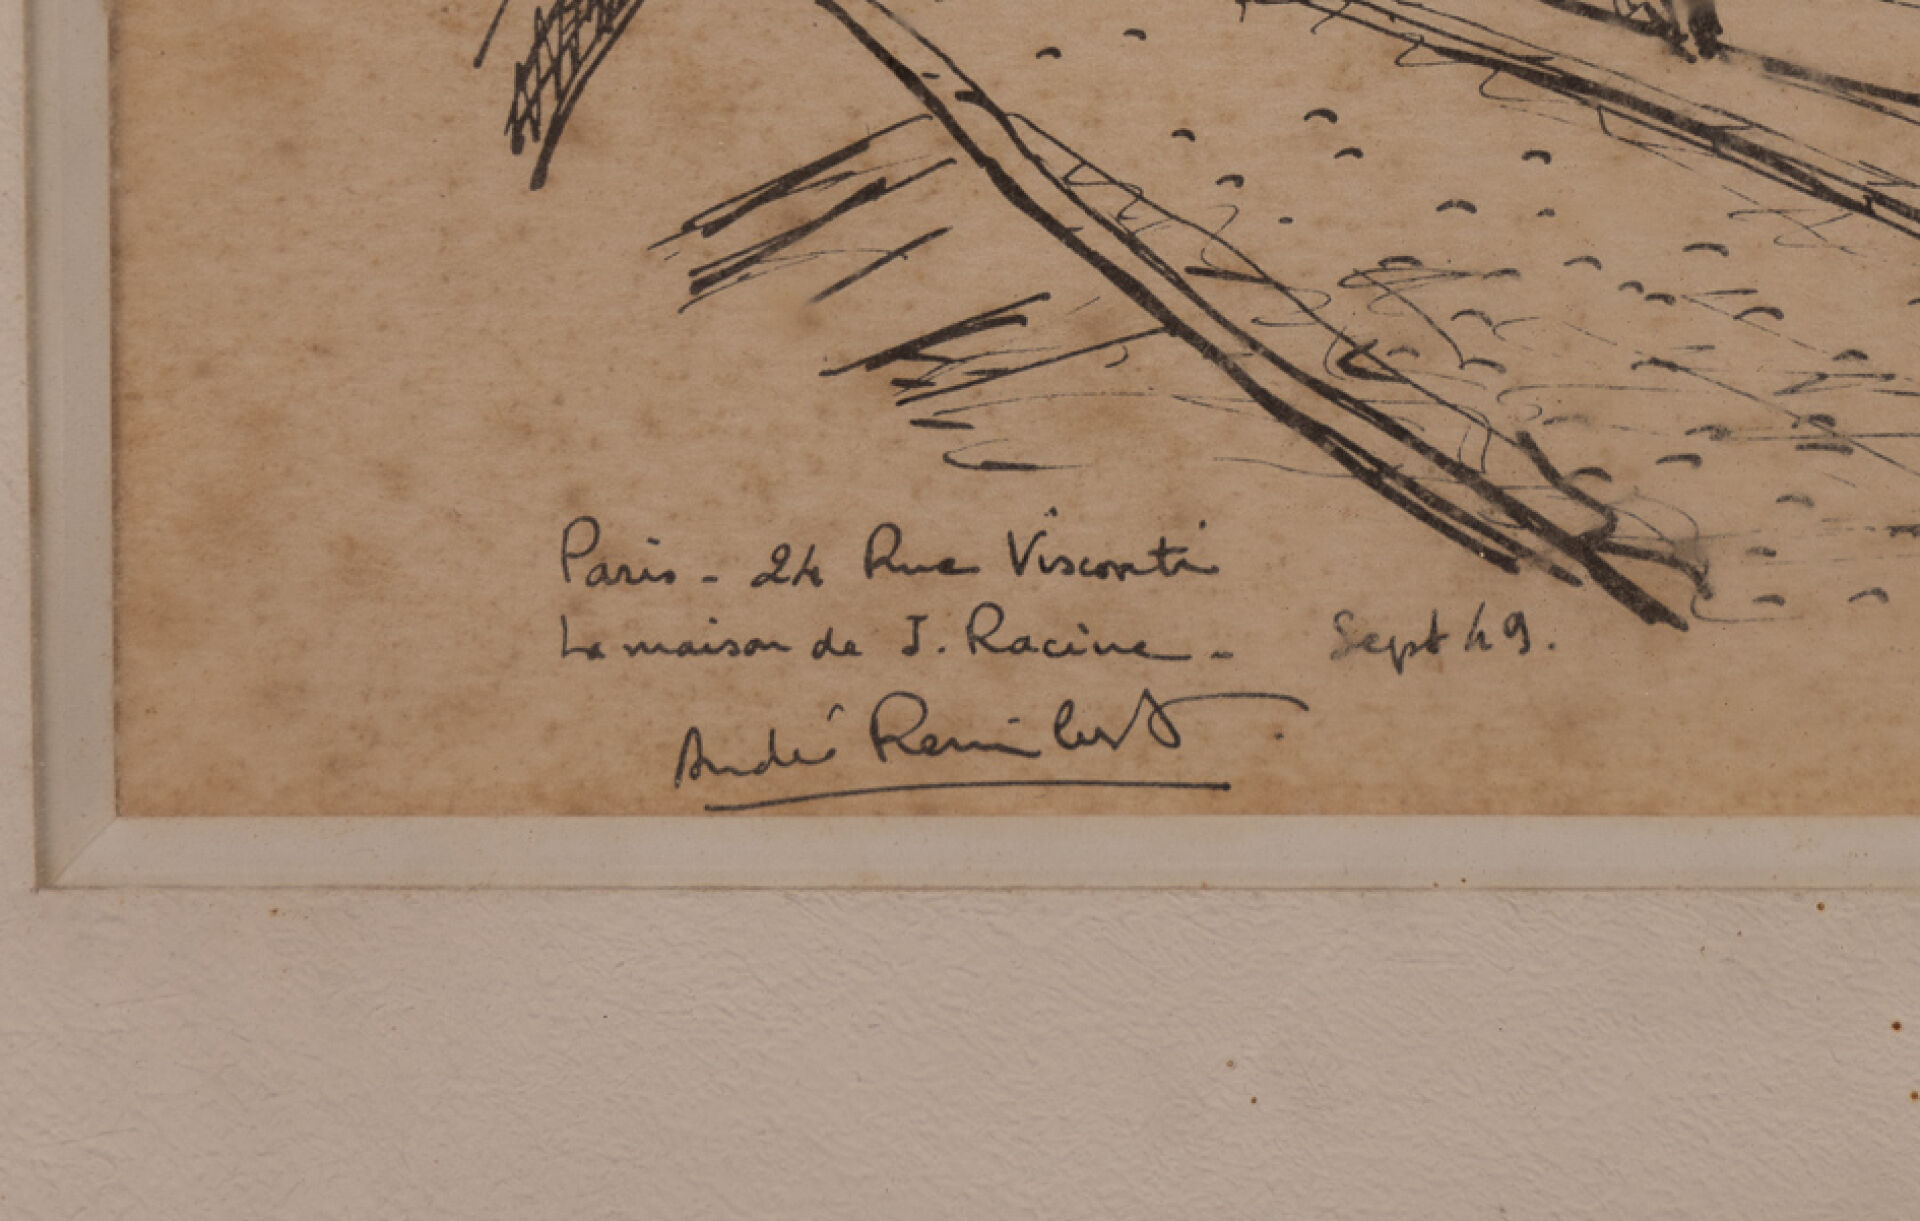 Paris - 24 Rue Visconti
La maison de J. Racine - Sept 49.
André